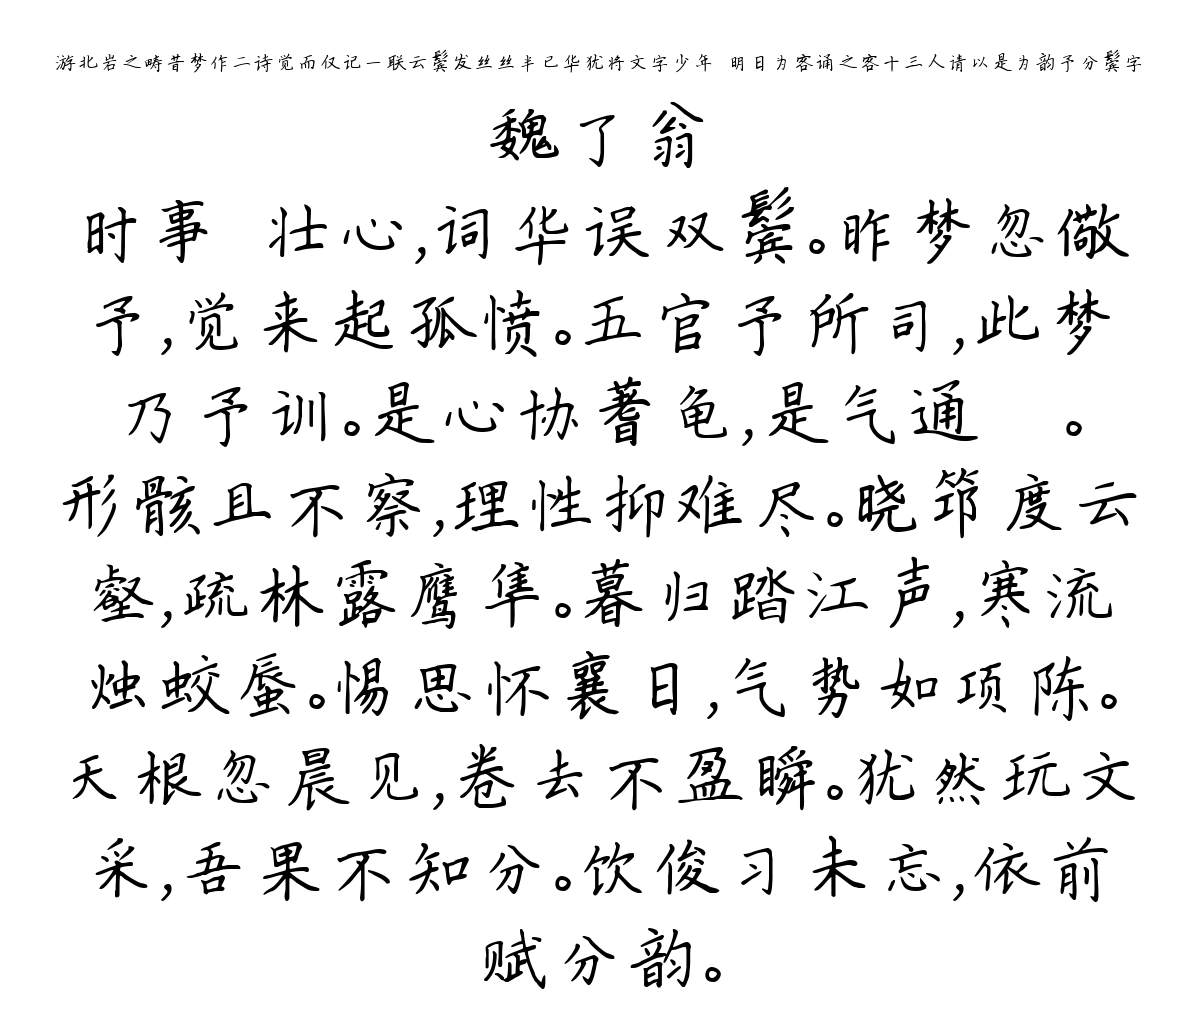 游北岩之畴昔梦作二诗觉而仅记一联云鬓发丝丝半已华犹将文字少年 明日为客诵之客十三人请以是为韵予分鬓字
魏了翁
时事 壮心,词华误双鬓。昨梦忽儆
予,觉来起孤愤。五官予所司,此梦
乃予训。是心协蓍龟,是气通 。
形骸且不察,理性抑难尽。晓筇度云
壑,疏林露鹰隼。暮归踏江声,寒流
烛蛟蜃。惕思怀襄日,气势如项陈。
天根忽晨见,卷去不盈瞬。犹然玩文
采,吾果不知分。饮俊习未忘,依前
赋分韵。